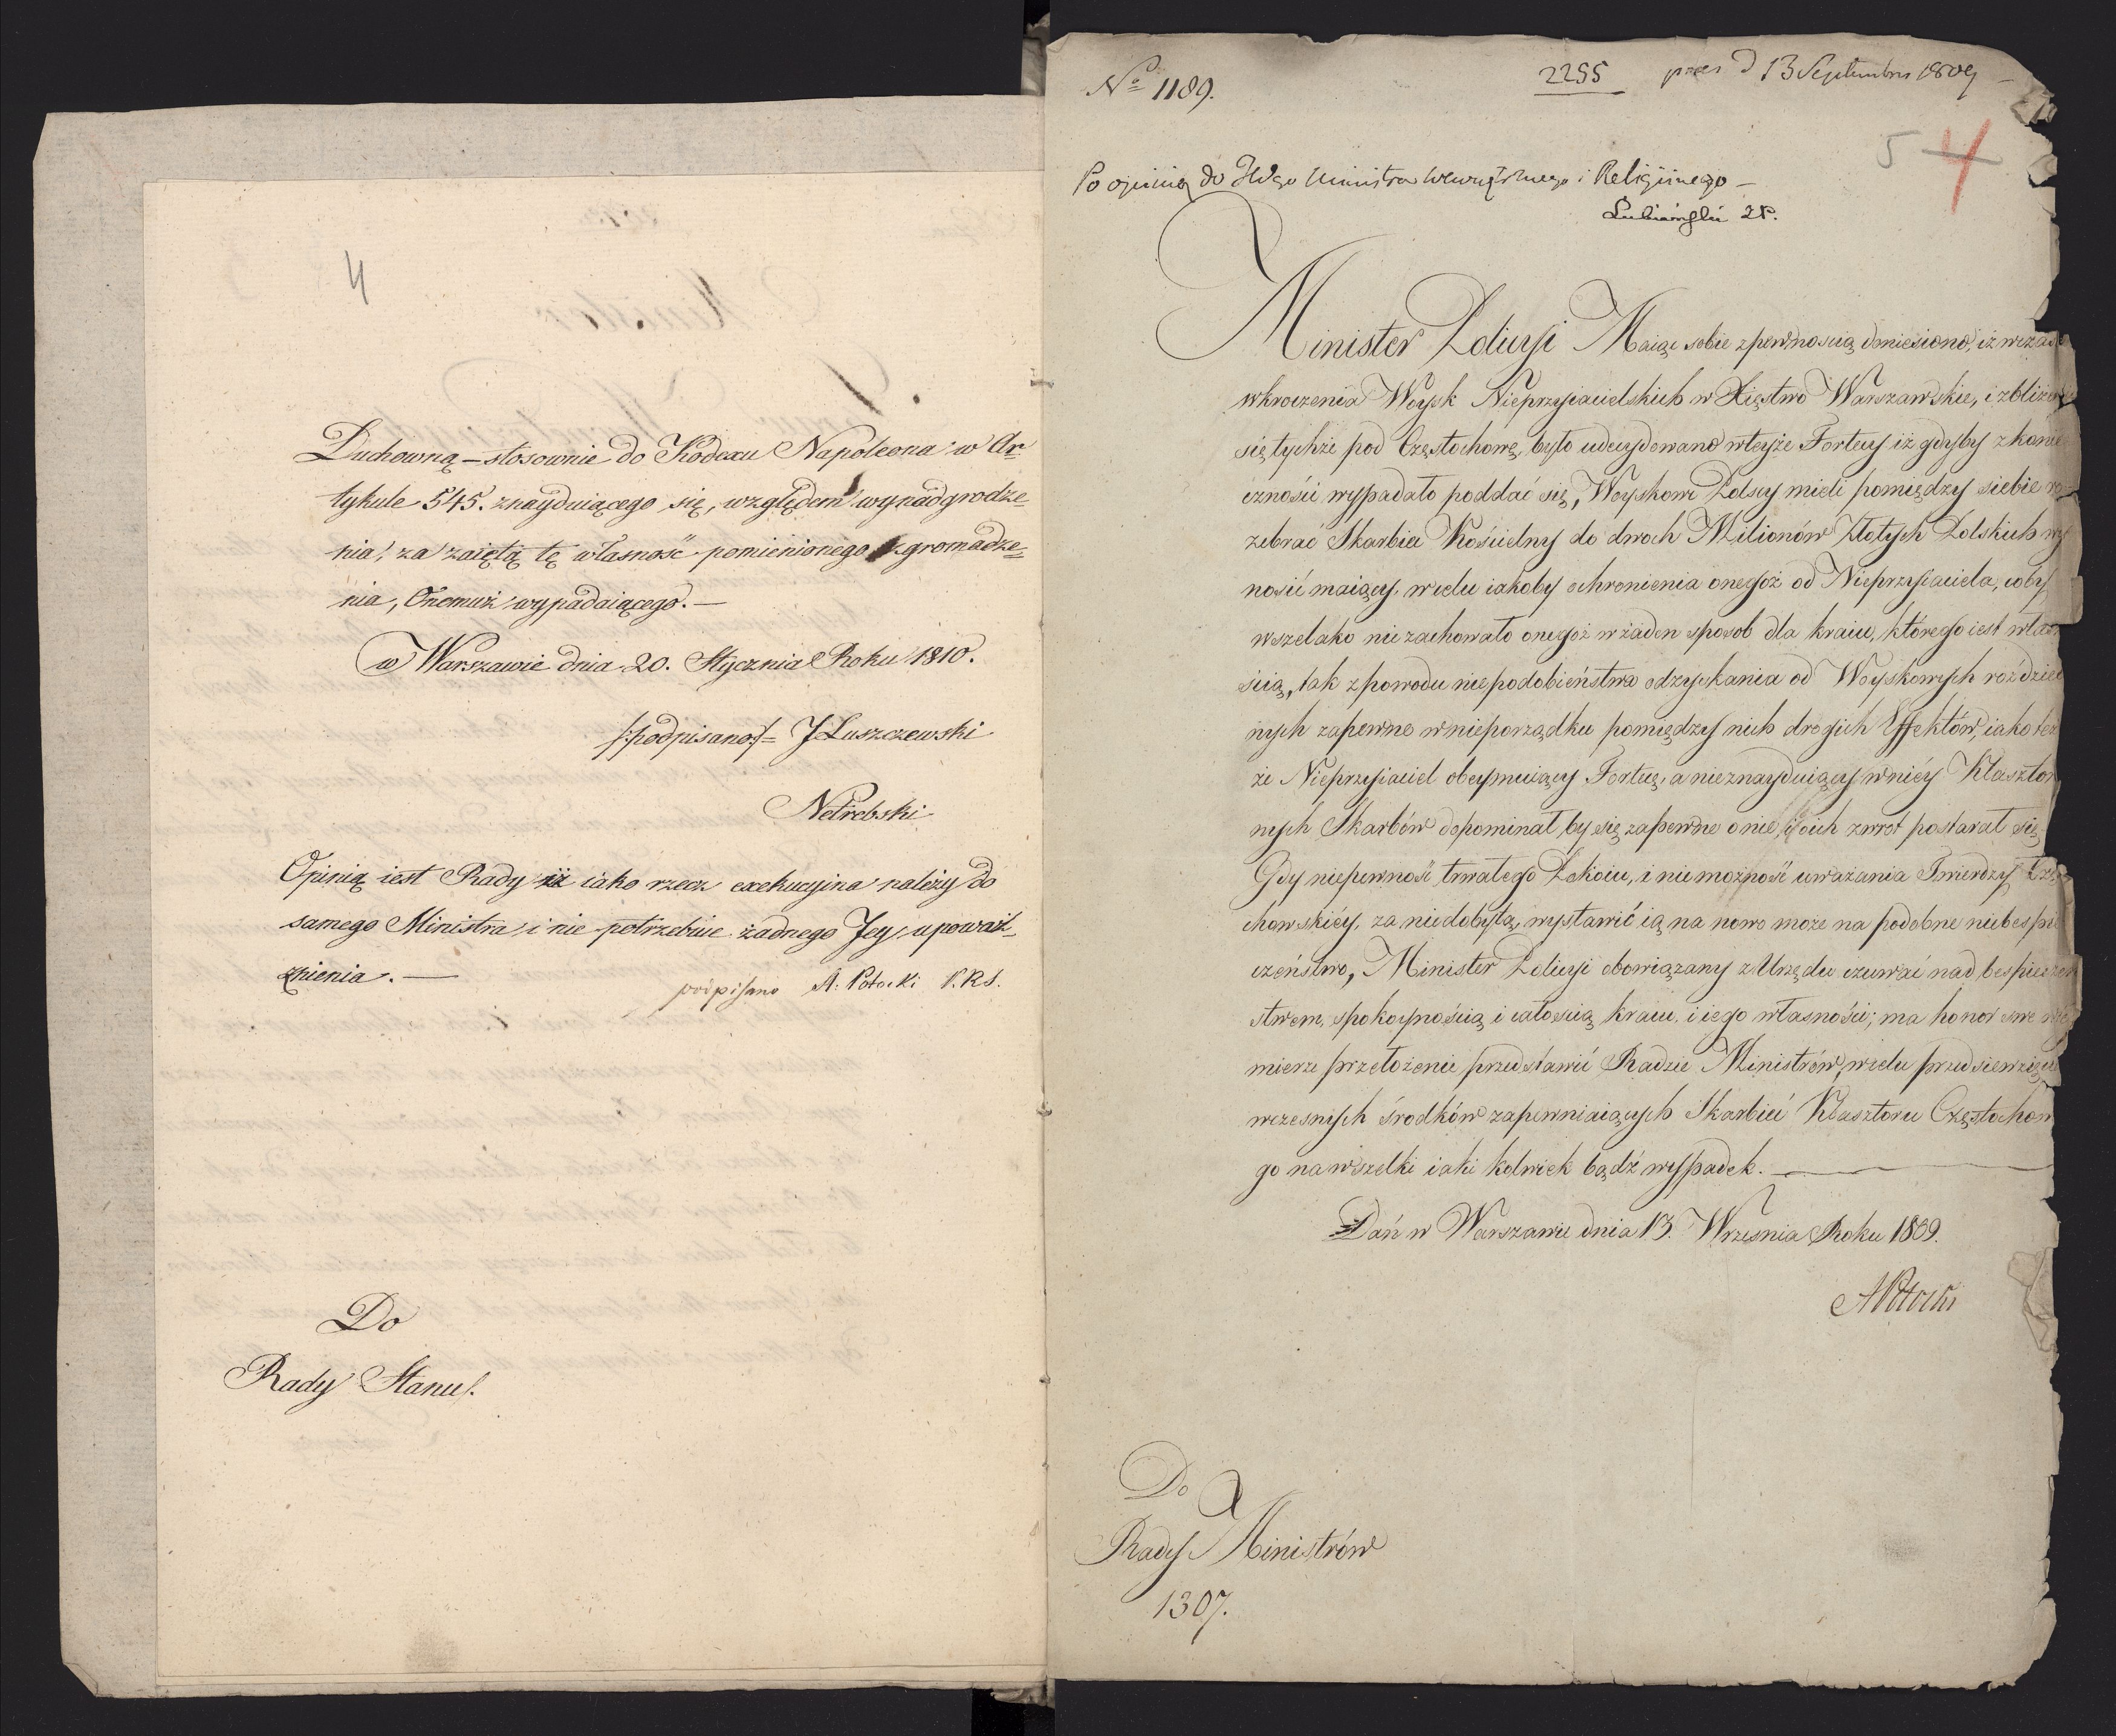 4
Duchowną – stosownie do Kodexu Napoleona w Ar=
tykule 545. znayduiącego się, względem wynadgrodze=
nia, za zaiętą tę własność pomienionego zgromadze=
nia, Onemuż wypadaiącego. —
w Warszawie dnia 20. Stycznia Roku 1810.
/:podpisano:/= J Łuszczewski
Netrebski
Opinią iest Rady iż iako rzecz exekucyjna należy do
samego Ministra i nie potrzebuie żadnego Jey upoważ=
nienia. —
podpisano A: Potocki P.R.S.
Do
Rady Stanu.
No 1189.
2255 praes d 13 Septembris 1809
5 4
Po opinią do JWgo Ministra Wewnętrznego i Religijnego —
Łubieński
Minister Policyi Maiąc sobie z pewnością doniesiono, iż w czas
wkroczenia Woysk Nieprzyiacielskich w Xięstwo Warszawskie, i zbliżen
się tychże pod Częstochowę, było udecydowano w teyże Fortecy iż gdyby z konie
czności wypadało poddać się, Woyskowi Polscy mieli pomiędzy siebie ro
zebrać Skarbiec Kościelny do dwoch Milionów Złotych Polskich wy
nosić maiący, w celu iakoby ochronienia onegoż od Nieprzyiaciela, coby
wszelako nie zachowało onegoż w żaden sposob dla kraiu, którego iest włas
ścią, tak z powodu niepodobieństwa odzyskania od Woyskowych rozdziel
nych zapewne w nieporządku pomiędzy nich drogich Effektów, iako też
że Nieprzyiaciel obeymuiący Fortecę, a nieznayduiący w niéy Klasztor
nych Skarbów dopominał by się zapewne o nie, i o ich zwrot postarał się.
Gdy niepewność trwałego Pokoiu, i niemożność uważania Twierdzy Czę
chowskiéy, za niedobytą, wystawić ią na nowo może na podobne niebespie
czeństwo, Minister Policyi obowiązany z Urzędu czuwać nad bespieczeń
stwem, spokoynością i całością kraiu, i iego własności; ma honor swe
mierze przełożenie przedstawić Radzie Ministrów, w celu przedsiewzięcia
wczesnych środków zapewniaiących Skarbiec Klasztoru Częstochow
go na wszelki iaki kolwiek bądź wypadek. —
Dań w Warszawie dnia 13. Września Roku 1809.
APotocki
Do
Rady Ministrów
1307.